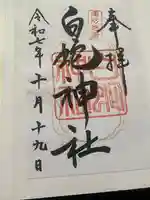 奉拝
白蛇神社
令和七年十月十九日